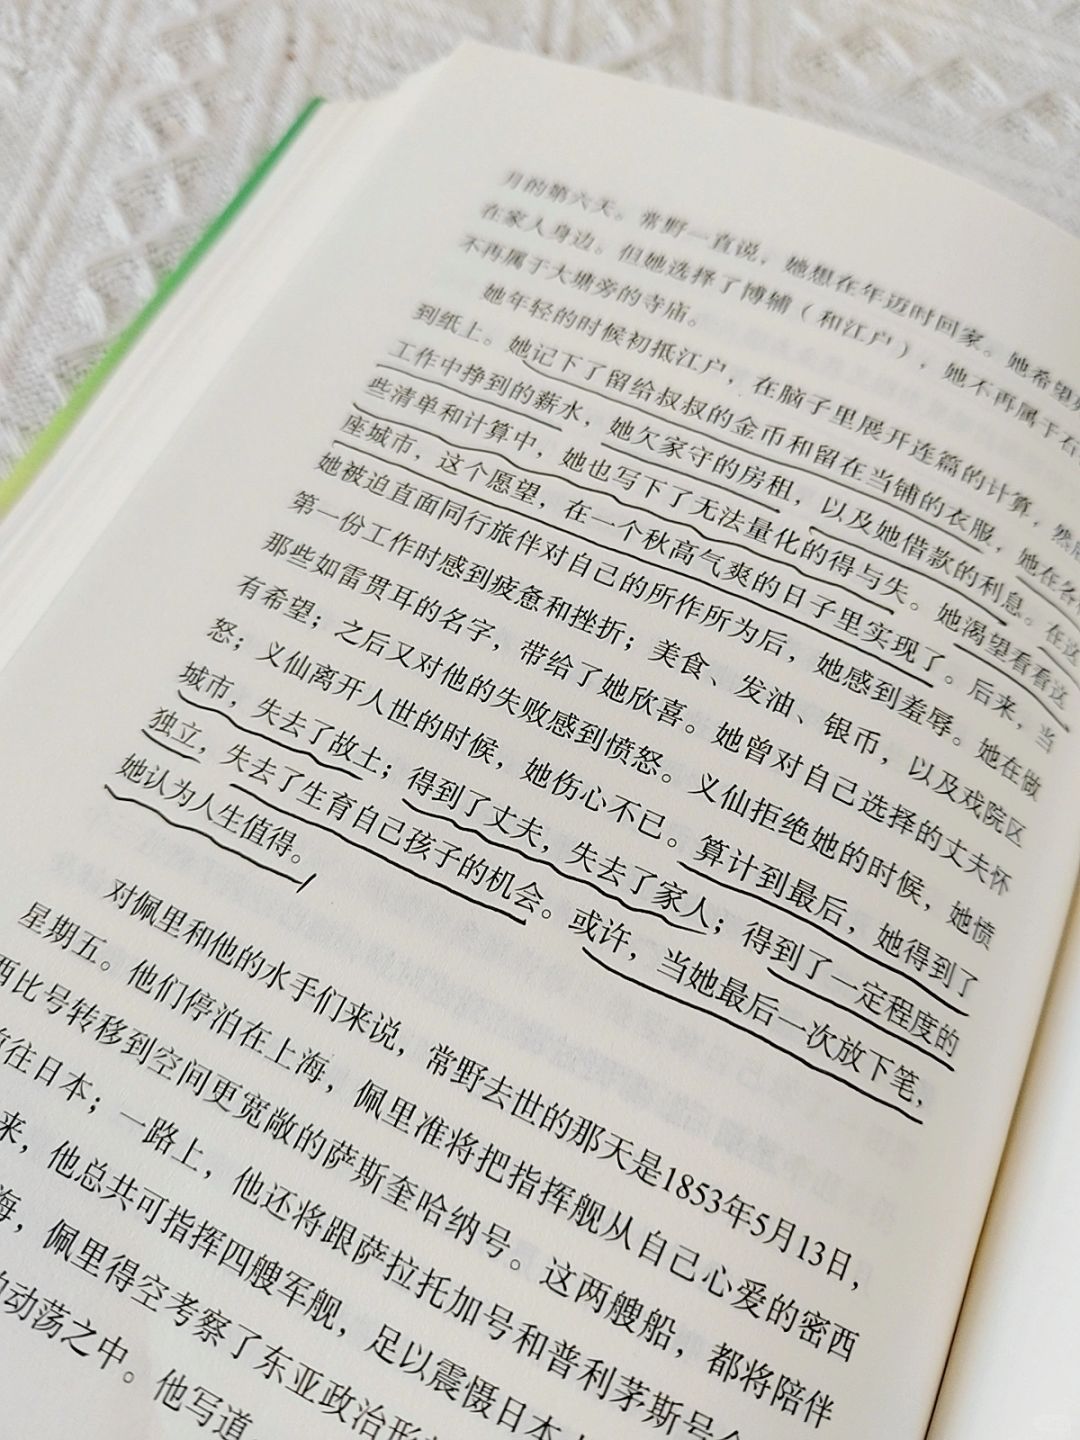 月的第六天。常野一直说，她想在年迈时回家。她希望
在家人身边。但她选择了博辅（和江户），她不再属于石
不再属于大塘旁的寺庙。
她年轻的时候初抵江户，在脑子里展开连篇的计算，然
到纸上。她记下了留给叔叔的金币和留在当铺的衣服，她在各
工作中挣到的薪水，她欠家守的房租，以及她借款的利息。在这
些清单和计算中，她也写下了无法量化的得与失。她渴望看看这
座城市，这个愿望，在一个秋高气爽的日子里实现了。后来，当
她被迫直面同行旅伴对自己的所作所为后，她感到羞辱。她在做
第一份工作时感到疲惫和挫折；美食、发油、银币，以及戏院区
那些如雷贯耳的名字，带给了她欣喜。她曾对自己选择的丈夫怀
有希望；之后又对他的失败感到愤怒。义仙拒绝她的时候，她愤
怒；义仙离开人世的时候，她伤心不已。算计到最后，她得到了
城市，失去了故土；得到了丈夫，失去了家人；得到了一定程度的
独立，失去了生育自己孩子的机会。或许，当她最后一次放下笔，
她认为人生值得。
对佩里和他的水手们来说，常野去世的那天是1853年5月13日，
星期五。他们停泊在上海，佩里准将把指挥舰从自己心爱的密西
西比号转移到空间更宽敞的萨斯奎哈纳号。这两艘船，都将陪伴
往日本；一路上，他还将跟萨拉托加号和普利茅斯号
来，他总共可指挥四艘军舰，足以震慑日本
海，佩里得空考察了东亚政治形
动荡之中。他写道，